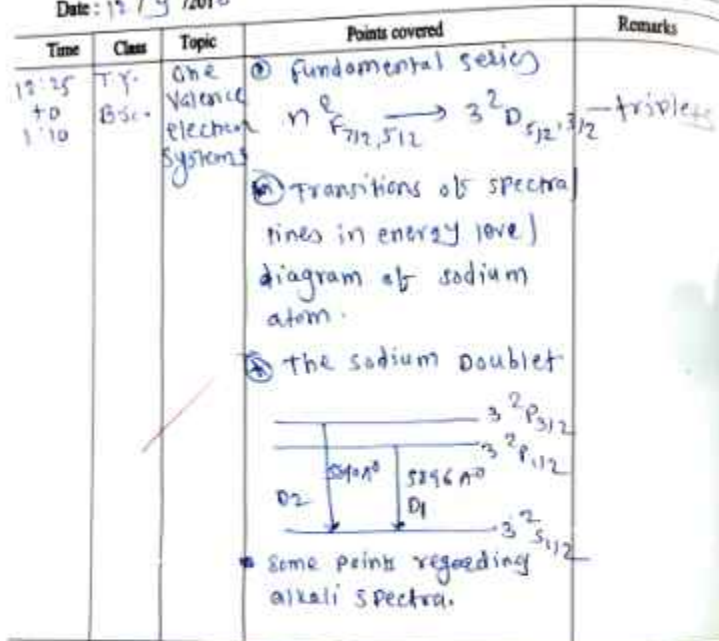 Date : 12 / 9 /201
Time Class Topic Points covered Remarks
12:25 to 1:10
T.Y. BSc.
One Valence electron Systems
Fundamental series
n ² F 7/2, 5/2 → 3 ² D 5/2, 3/2 — triplets
Transitions of spectral
lines in energy level
diagram of sodium
atom.
The sodium Doublet
3 ² P 3/2
3 ² P 1/2
5890 A⁰ 5896 A⁰
D2 D1
3 ² S 1/2
Some points regarding
alkali spectra.